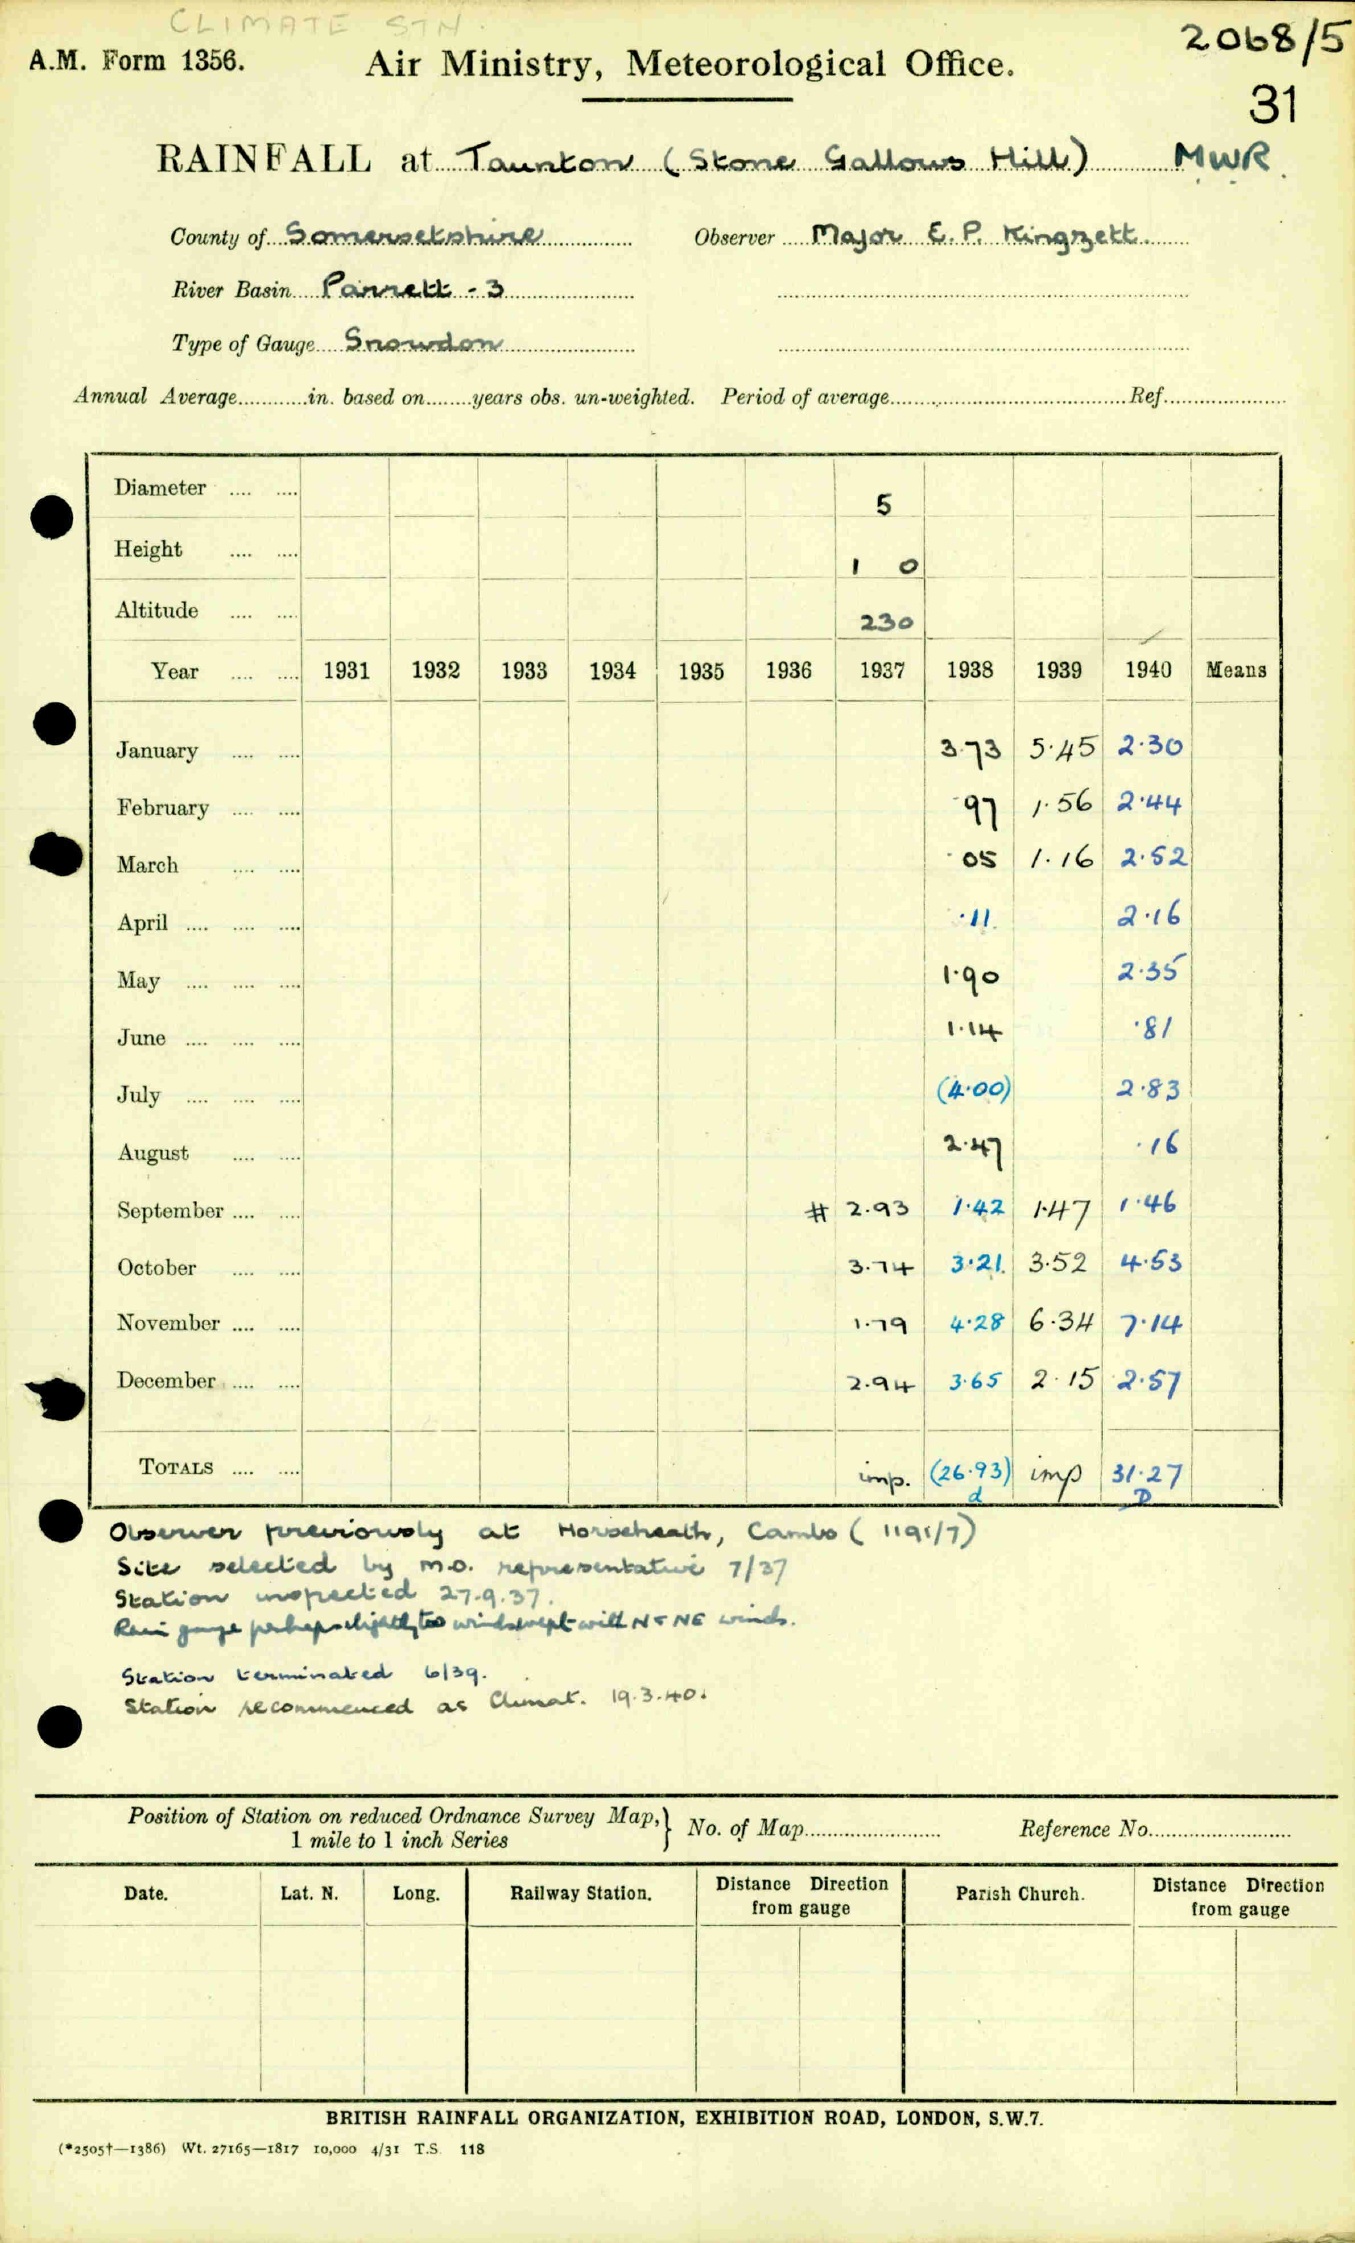 CLIMATE STN.
2068/5
A.M. Form 1356. Air Ministry, Meteorological Office.
31
RAINFALL at Taunton (Stone Gallows Hill) MWR.
County of Somersetshire Observer Major E. P. Kingzett
River Basin Parrett - 3
Type of Gauge Snowdon
Annual Average............in. based on........years obs. un-weighted. Period of average........ Ref........
Diameter .... .... 5
Height .... .... 1 0
Altitude .... .... 230
Year .... .... 1931 1932 1933 1934 1935 1936 1937 1938 1939 1940 Means
January .... .... 3.73 5.45 2.30
February .... .... .97 1.56 2.44
March .... .... .05 1.16 2.52
April .... .... .... .11 2.16
May .... .... .... 1.90 2.35
June .... .... .... 1.14 .81
July .... .... .... (4.00) 2.83
August .... .... 2.47 .16
September .... .... # 2.93 1.42 1.47 1.46
October .... .... 3.74 3.21 3.52 4.53
November .... .... 1.79 4.28 6.34 7.14
December .... .... 2.94 3.65 2.15 2.57
TOTALS .... .... imp. (26.93) imp 31.27
d D
Observer previously at Horseheath, Cambs (1191/7)
Site selected by M.O. representative 7/37
Station inspected 27.9.37.
Rain gauge perhaps slightly too windswept with N & NE winds.
Station terminated 6/39.
Station recommenced as Climat. 19.3.40.
Position of Station on reduced Ordnance Survey Map, } No. of Map........ Reference No........
1 mile to 1 inch Series
Date. Lat. N. Long. Railway Station. Distance Direction from gauge Parish Church. Distance Direction from gauge
BRITISH RAINFALL ORGANIZATION, EXHIBITION ROAD, LONDON, S.W.7.
(*2505†—1386) Wt. 27165—1817 10,000 4/31 T.S. 118